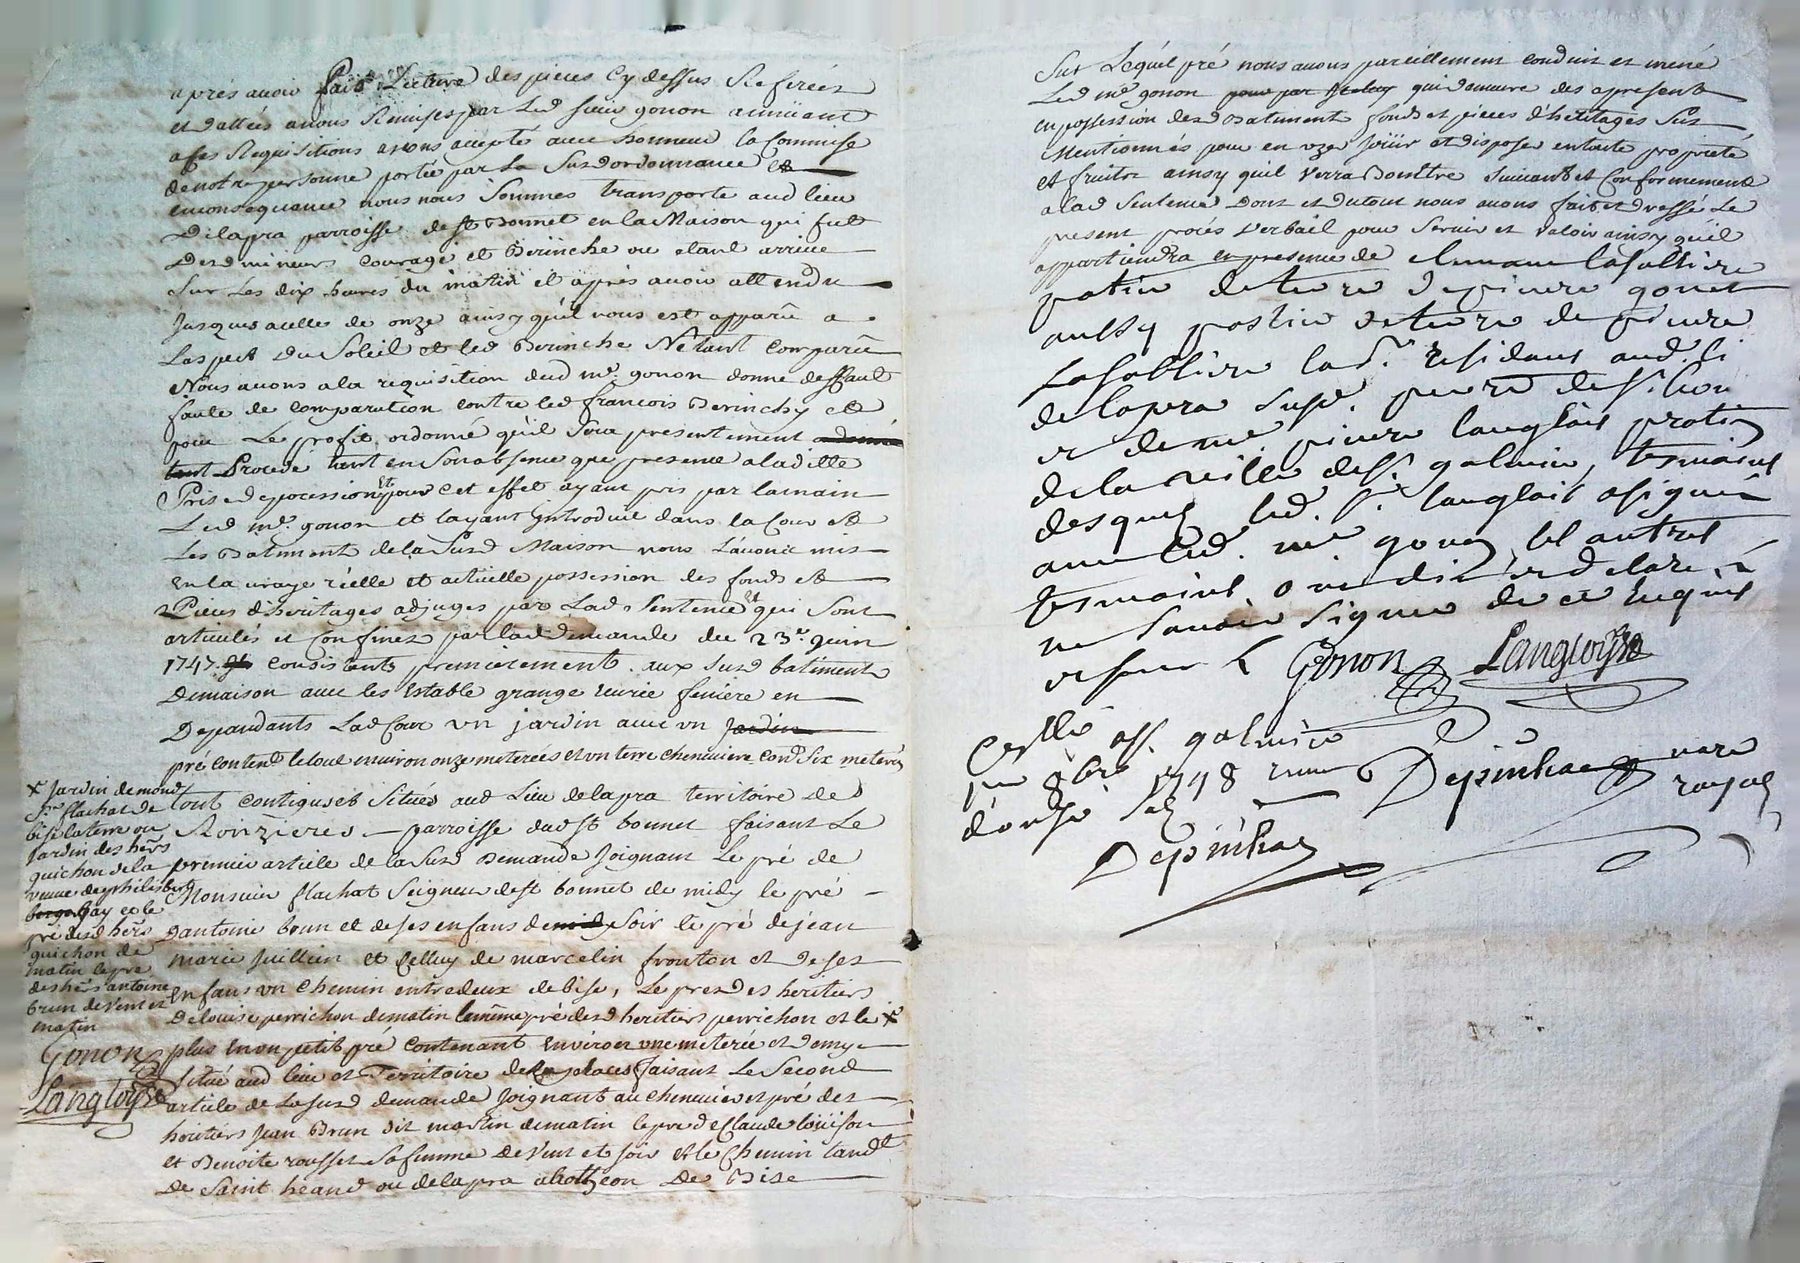 après avoir fait Lecture des pieces Cy dessus Refirées
et dattées a nous Remises par Led sieur gonon adnüant
a ses Requisitions avons accepté avec honneur la Commise
de notre personne portée par La Susd ordonnance et
en consequance nous nous Sommes transporte aud lieu
Delapra parroisse de st Bonnet en la Maison qui fut
Desd mineurs Courage et Berinche ou etant arrive
Sur Les dix heures du matin et après avoir attendu
Jusques a celles de onze ainsy qu'il nous est apparü a
Laspect Du Soleil et led Berinche Nétant Comparü
Nous avons a la requisition dud me gonon donne deffaut
faute de Comparution contre led francois Berinchy et
pour Le profit ordonné qu'il Sera presentement
tant Procede tant en Son absence que presence a lad'itte
Prise de pocession et pour Cet effet ayant pris par la main
Led me gonon et layant Introduit dans la Cour et
Les Batiment de la Susd Maison nous L'avons mis
En la vraye réelle et actüelle possession des fonds et
Pieces d'heritages adjuges par Lad Sentence et qui Sont
articulés et Confinez par lad demande du 23e juin
1747. Consistants premierement aux Susd batiments
Demaison avec les Estable grange Ecurie feniere en
Dependants Lad Cour un jardin avec un Jardin
pré Contend le tout environ onze meterées et un terre cheneviere Cond Six meterées
tout Contigus et Situés aud Lieu de lapra territoire de
Ronzieres parroisse dud st bonnet faisant Le
premier article de la Susd Demande Joignant Le pré de
Monsieur flachat Seigneur de st bonnet de midy le pré
d'antoine brun et de ses enfans de midy Soir le pré de jean
marie Jullien et Celluy de marcelin frouton et de ses
Enfans un Chemin entredeux de bise, Le pre desd heritiers
De louise perrichon de matin le même pré desd heritiers perrichon et le x
plus En un petit pré Contenant Environ une meterée et demye
Situé aud lieu et Territoire de places faisant Le Second
article de La Susd demande Joignant au chenevier et pré des
heritiers Jean Brun dit martin de matin le pre de Claude loüison
et Benoite rousset Sa femme de Vent et soir et le Chemin tandt
De Saint heand ou de lapra a Bise
x Jardin de mond
Sr flachat de
bise la terre ou
Jardin des hers
quichon de la
veuve de philibert
Gay et le
pré desd hers
quichon de
matin le pre
des hers antoine
brun de Vent et
matin
Gonon
Langloys
Sur Lequel pré nous avons pareillement Conduit et mené
Led me gonon qui demeure des a present
en possession desd Batiment fonds et pieces d'heritages Sus
Mentionnés pour en uzer Joüir et disposer en toute proprieté
et fruits ainsy qu'il Verra Bon Etre Suivant et Conformement
a lad Sentence Dont et du tout nous avons fait et dressé Le
present procés Verbail pour Servir et Valoir ainsy qu'il
appartiendra en presence de
aussy
residans aud. li
de lapra Susd. de st. bon
et de me. pierre langlois pratin
de la ville de st. galmier, tesmoins
desquels led. sr. langlois a signé
avec led. me gonon les autres
tesmoins ont dit et declare
ne Savoir Signer de ce Enquis
Gonon Langloys
galmier
8bre 1748
Depinhac
royal
Depinhac